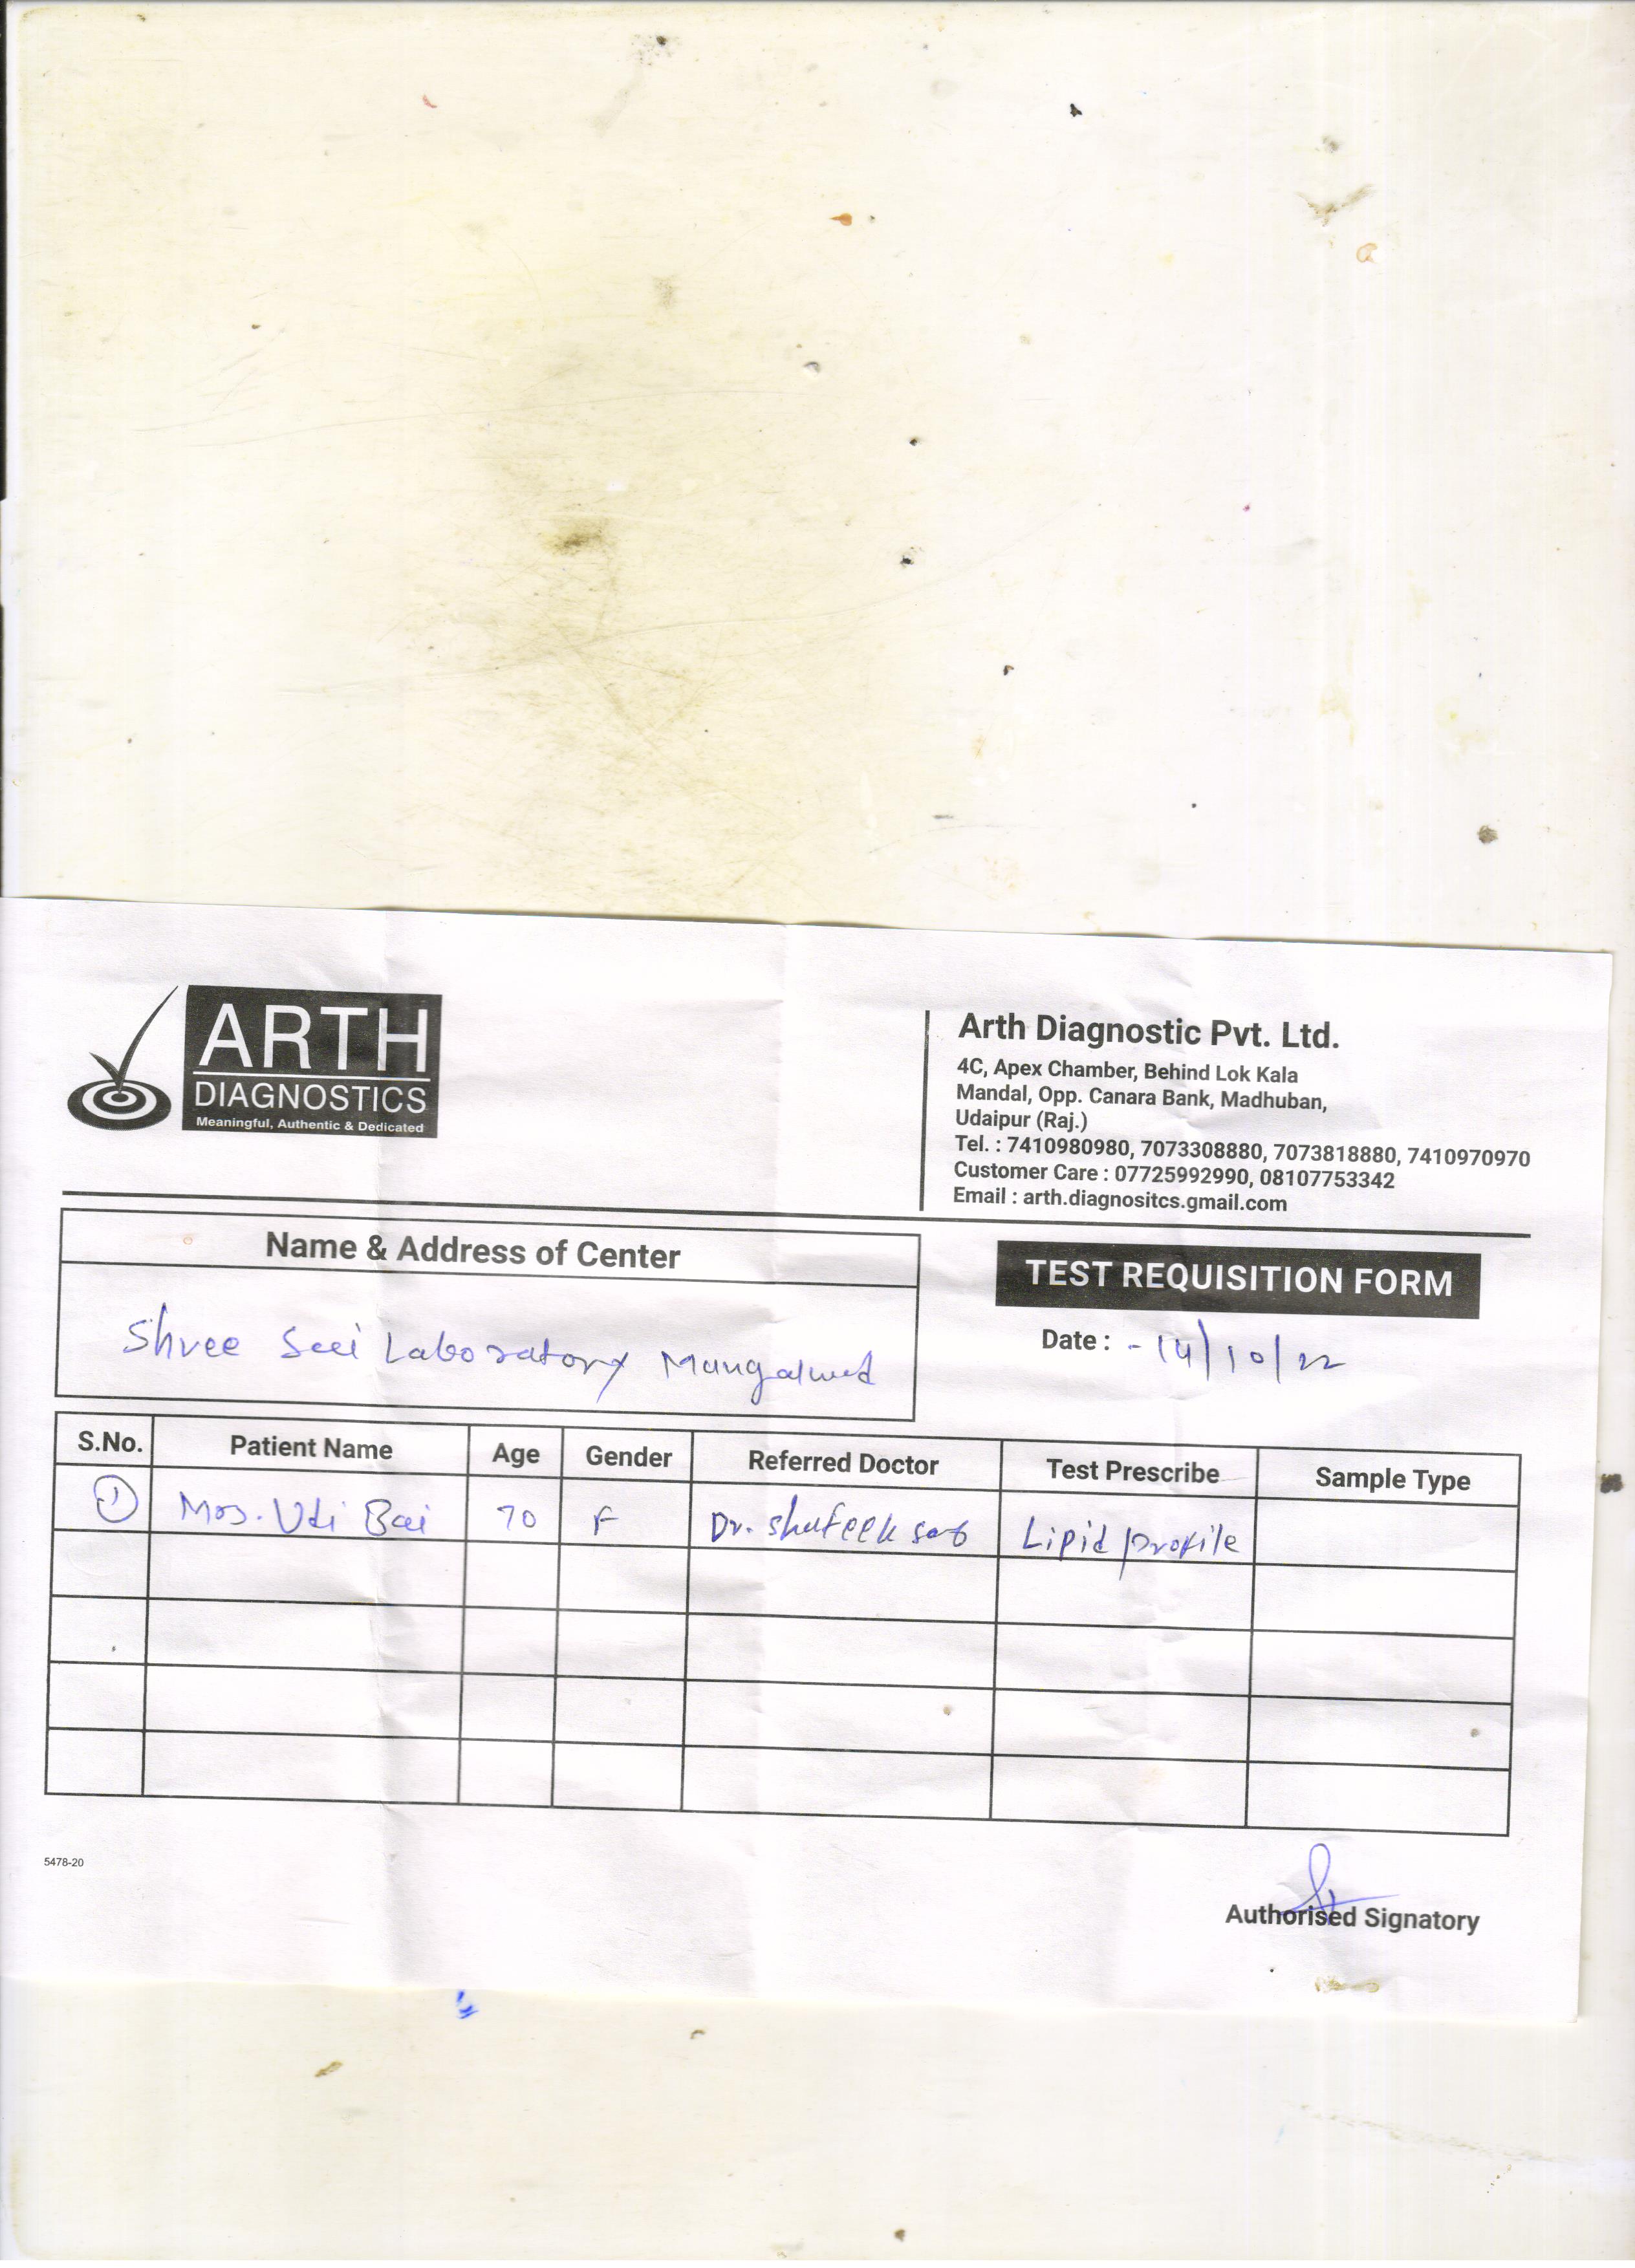 ARTH
DIAGNOSTICS
Meaningful, Authentic & Dedicated
Arth Diagnostic Pvt. Ltd.
4C, Apex Chamber, Behind Lok Kala
Mandal, Opp. Canara Bank, Madhuban,
Udaipur (Raj.)
Tel. : 7410980980, 7073308880, 7073818880, 7410970970
Customer Care : 07725992990, 08107753342
Email : arth.diagnositcs.gmail.com
Name & Address of Center
Shree Laboratory
TEST REQUISITION FORM
Date : - 14/10/22
S.No. Patient Name Age Gender Referred Doctor Test Prescribe Sample Type
1 Mrs. Udi Bai 70 F Dr. Shafeek Lipid profile
5478-20
Authorised Signatory